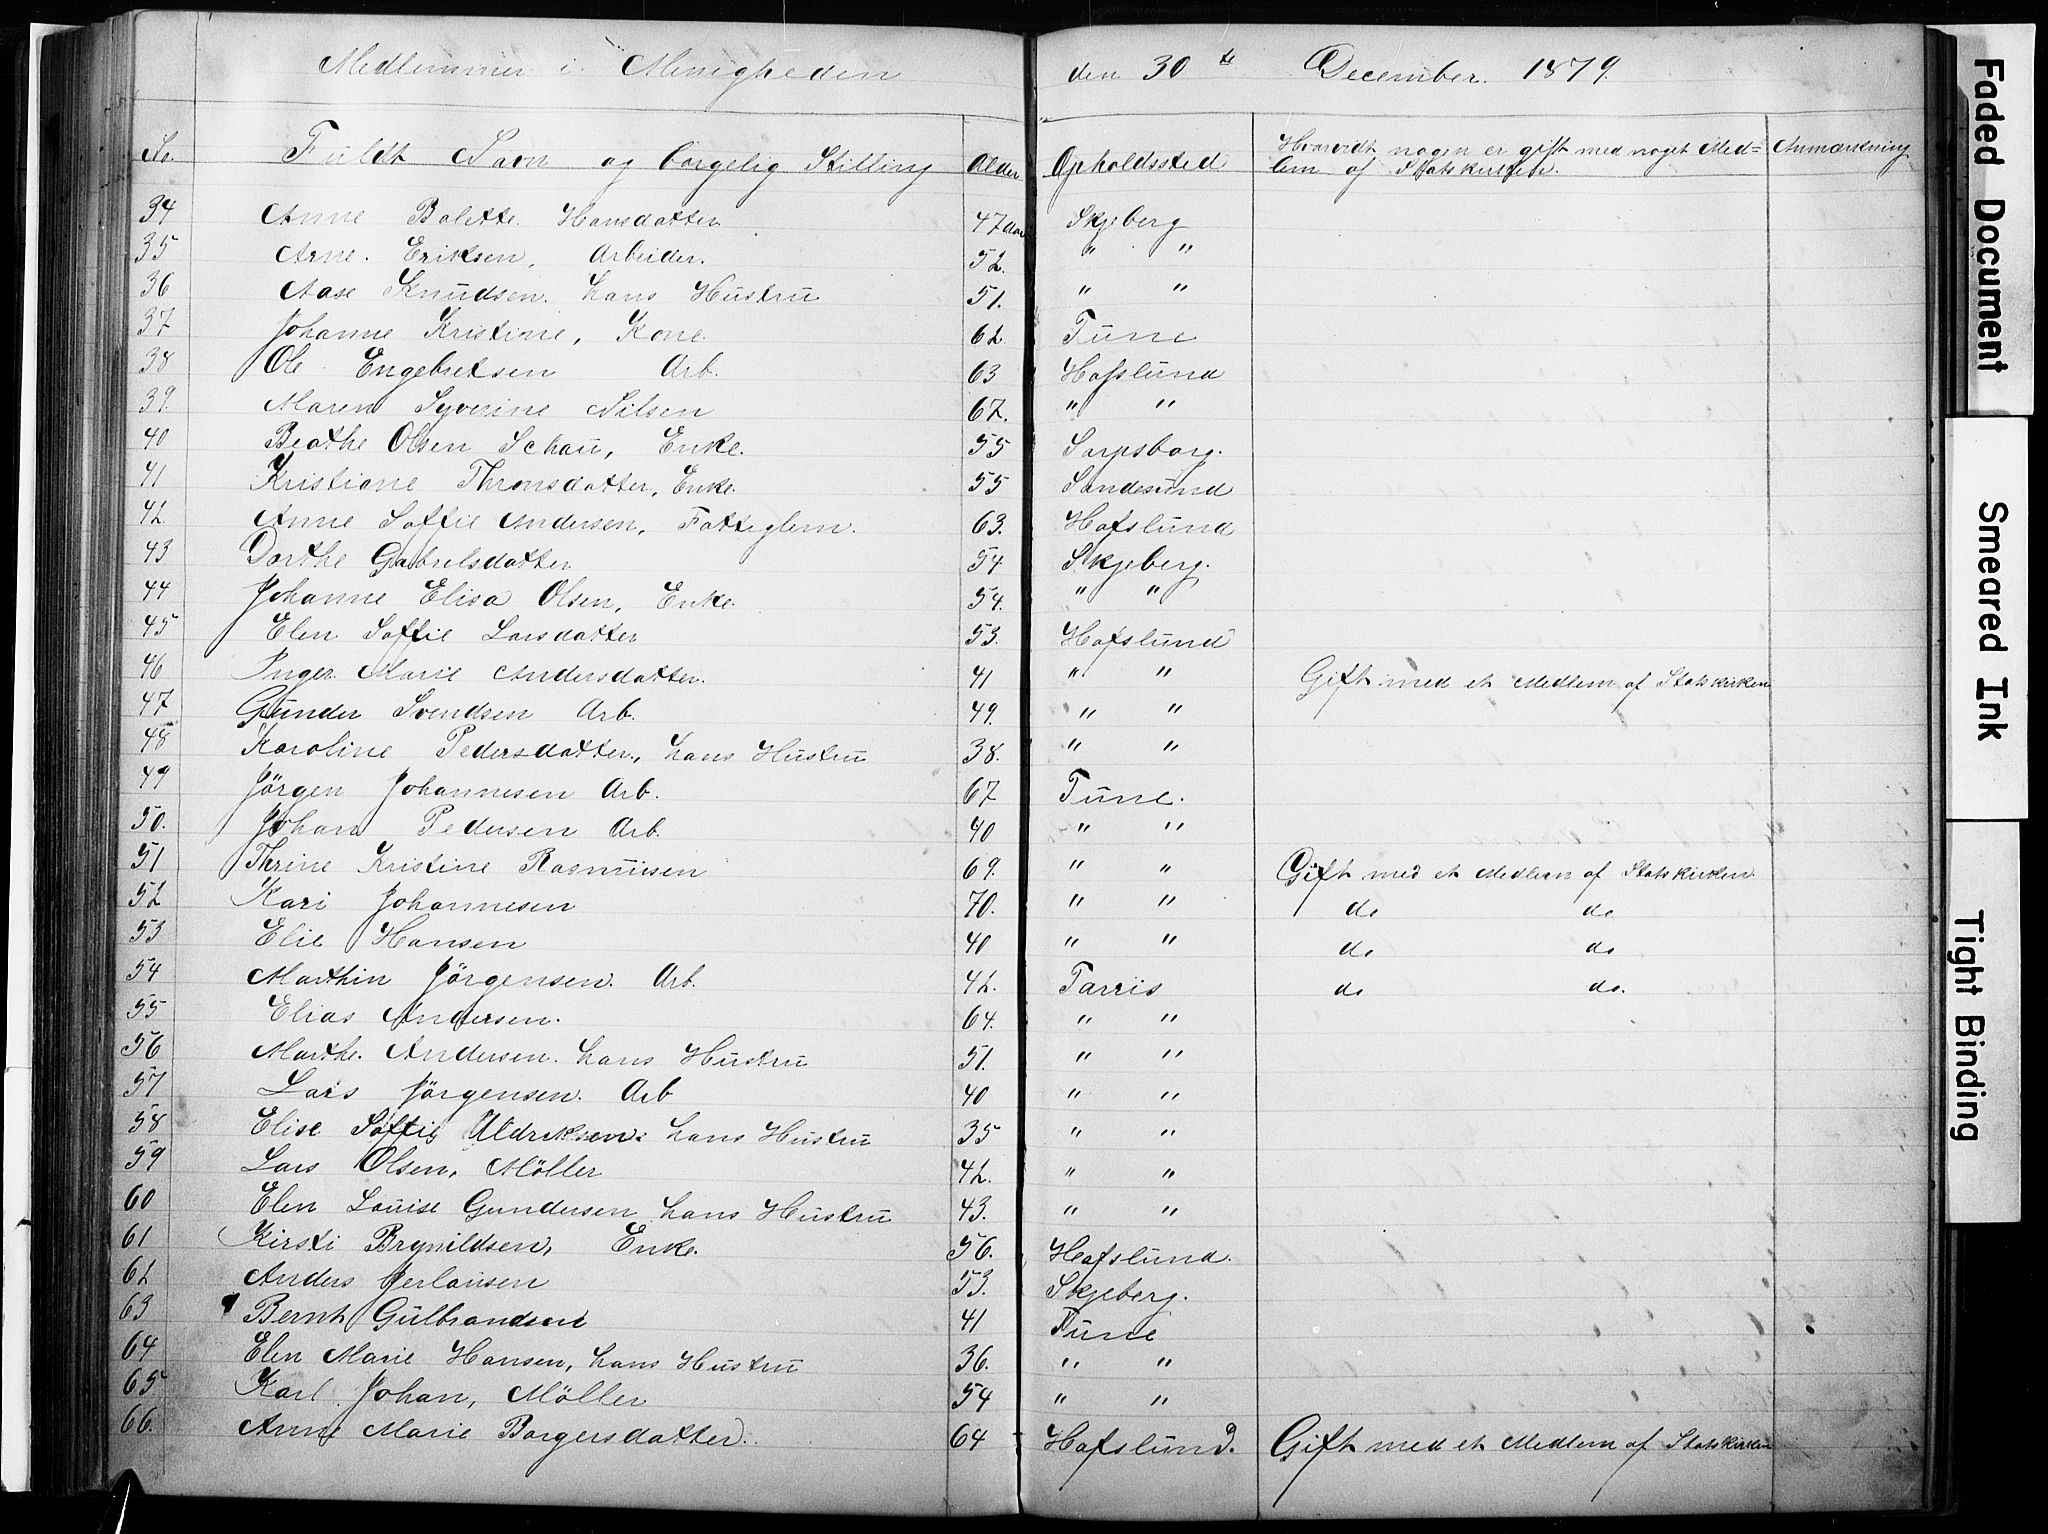 Medlemmer i Menigheden den 30te December 1879.
Nr. Fuldt Navn og borgelig Stilling Alder Opholdssted Hvorvidt nogen er gift med noget Med=
lem af Statskirken. Anmærkning
34 Anne Bolette Hansdatter 47 aar Skjeberg
35 Arne Eriksen, Arbeider. 52. " "
36 Aase Knudsen. hans Hustru 51. " "
37 Johanne Kristine, Kone 62 Tune
38 Ole Engebretsen Arb. 63 Hafslund
39. Maren Syverine Nilsen 67. " "
40 Beathe Olsen Schau, Enke. 55 Sarpsborg.
41 Kristiane Thronsdatter, Enke. 55 Sandesund
42. Anne Soffie Andersen, Fattiglem. 63. Hafslund
43 Dorthe Gabrielsdatter 54 Skjeberg.
44 Johanne Elisa Olsen, Enke. 54. " "
45 Elen Soffie Larsdatter 53. Hafslund
46 Inger Marie Andersdatter. 41 " " Gift med et Medlem af Statskirken
47 Gunder Svendsen Arb. 49. " "
48 Karoline Pedersdatter, hans Hustru 38. " "
49 Jörgen Johannesen Arb. 67 Tune.
50. Johan Pedersen Arb. 40 " "
51 Thrine Kristine Rasmusen 69. " " Gift med et Medlem af Statskirken
52 Kari Johannesen 70. " " do do
53 Elie Hansen 40 " " do do
54 Marthin Jörgensen. Arb. 42. Tarris do do.
55 Elias Andersen. 64. " "
56 Marthe Andersen. hans Hustru 51. " "
57 Lars Jörgensen. Arb 40 " "
58 Elise Soffie Uldriksen. hans Hustru 35 " "
59 Lars Olsen, Möller 42. " "
60 Elen Louise Gundersen hans Hustru 43. " "
61 Kirsti Brynildsen, Enke. 56. Hafslund.
62 Anders Jerlausen 53. Skjeberg.
63 Bernt Gulbrandsen 41 Tune
64 Elen Marie Hansen, hans Hustru 36. " "
65 Karl Johan, Möller 54 " "
66. Anne Marie Borgersdatter. 64 Hafslund. Gift med et Medlem af Statskirken
Faded Document
Smeared Ink
Tight Binding